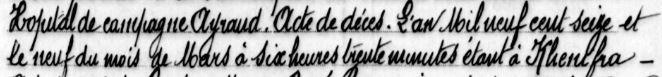 Hopital de campagne Ayraud. Acte de décès. L'an Mil neuf cent seize et
le neuf du mois de Mars à six heures trente minutes étant à Khenifra —